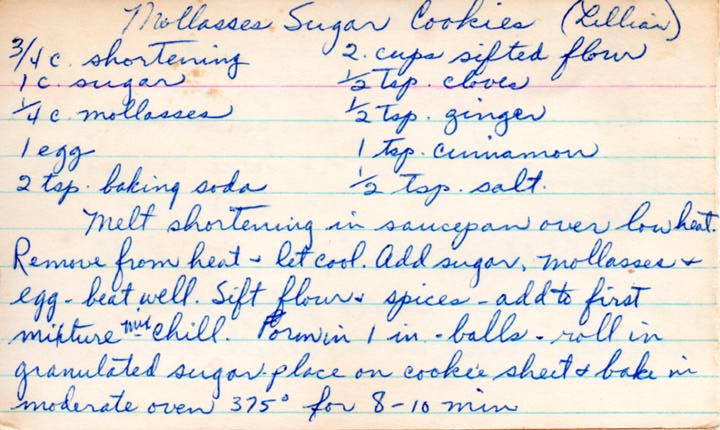 Mollasses Sugar Cookies (Lillian)
3/4 c. shortening 2. cups sifted flour
1 c. sugar 1/2 tsp. cloves
1/4 c. mollasses 1/2 tsp. ginger
1 egg 1 tsp. cinnamon
2 tsp. baking soda 1/2 tsp. salt.
Melt shortening in saucepan over low heat.
Remove from heat + let cool. Add sugar, mollasses +
egg - beat well. Sift flour + spices - add to first
mixture mix chill. Form in 1 in - balls - roll in
granulated sugar. place on cookie sheet + bake in
moderate oven 375° for 8-10 min